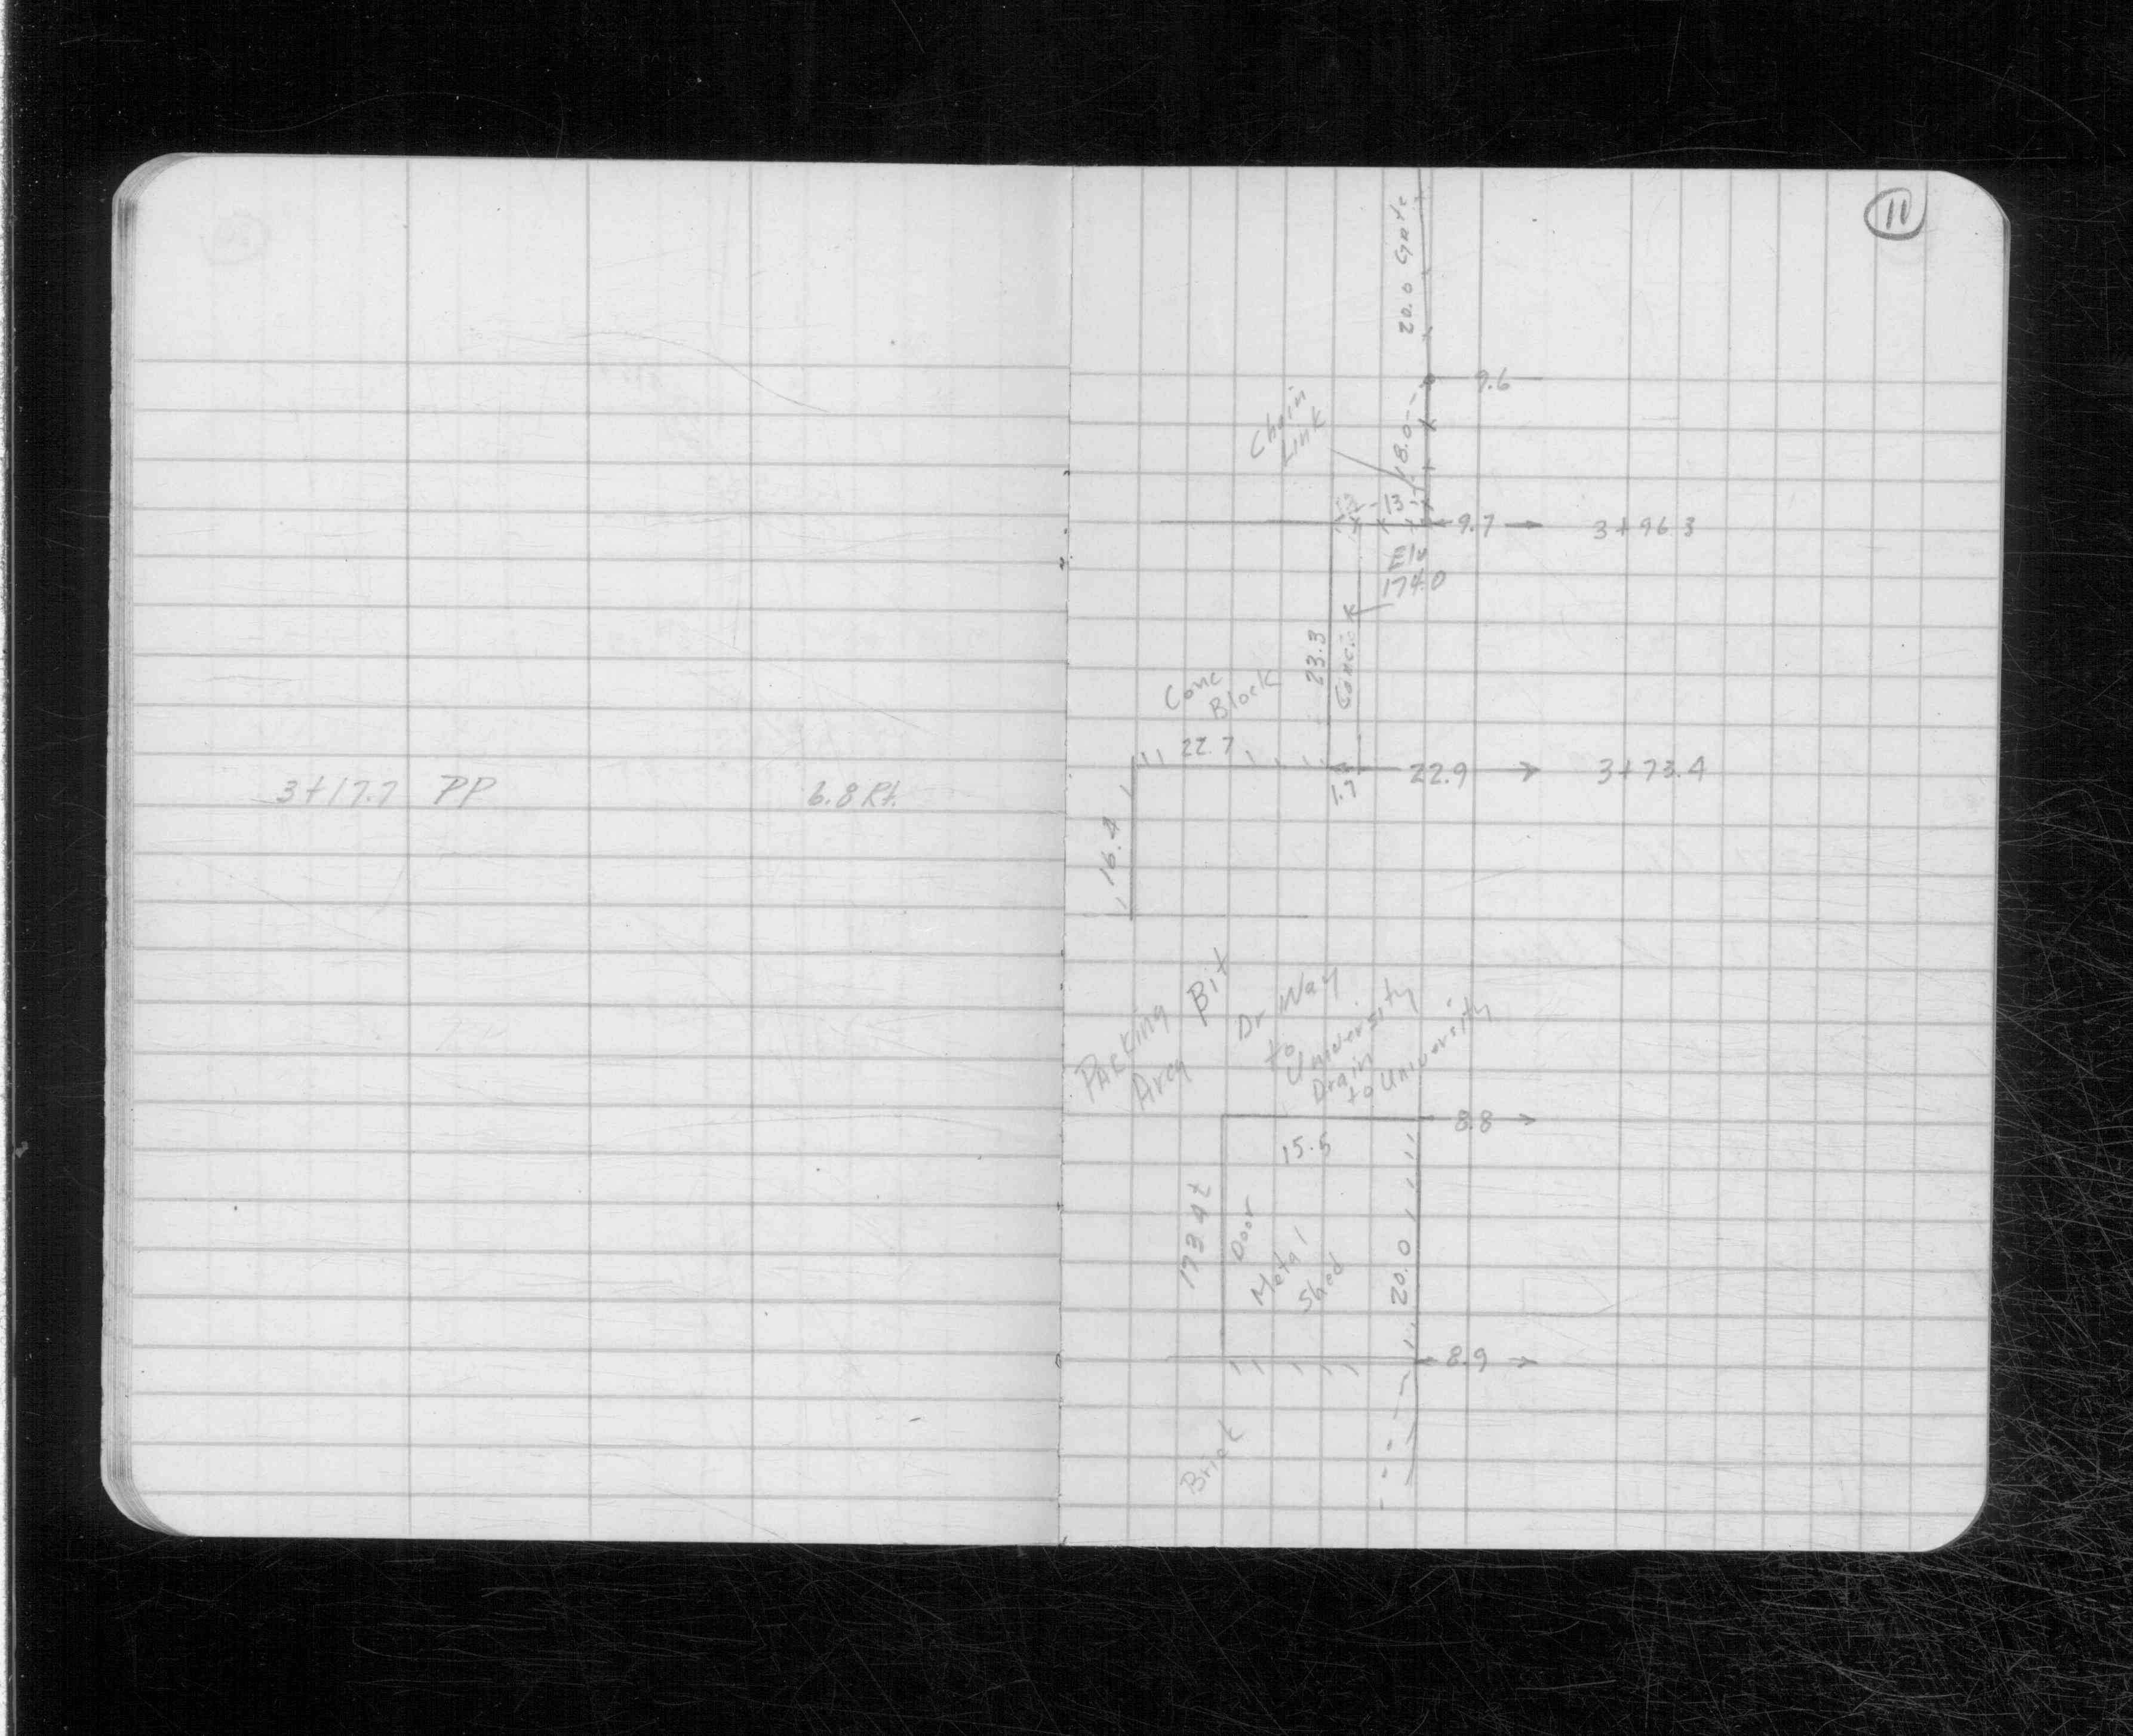 3+17.7 PP 6.8 Rt.
11
20.0 Gate
9.6
Chain
Link
18.0
13
9.7 3+96.3
174.0
23.3
Conc.
Conc
Block
22.7
22.9 3+73.4
1.7
16.4
Parking
Area
Bit
Dr Way
to
University
Drain
to University
8.8
15.5
Door
Metal
Shed
20.0
8.9